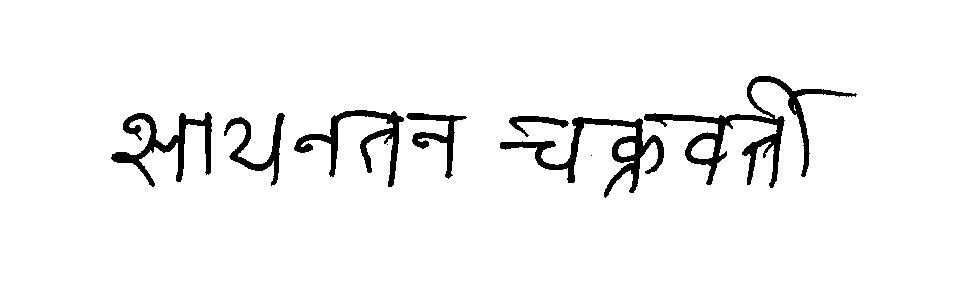 सायनतन चक्रवर्त्ती